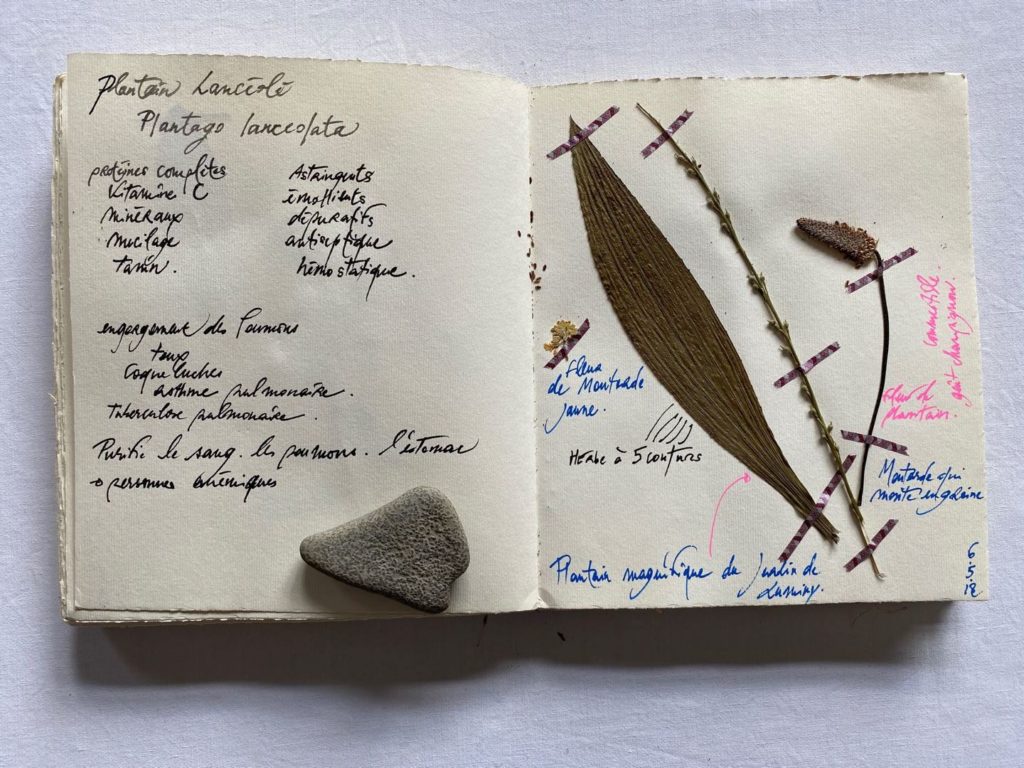 Plantain Lancéolé
Plantago lanceolata
protéines complètes
Vitamine C
minéraux
mucilage
tanin.
Astringents
émollients
dépuratifs
antiseptique
hémostatique.
engorgement des Poumons
toux
Coqueluches
asthme pulmonaire.
Tuberculose pulmonaire.
Purifie le sang. les poumons. l'estomac
personnes anémiques
fleur
de Moutarde
jaune.
Herbe à 5 coutures
Plantain magnifique du Jardin de
Luminy.
fleur de
plantain.
comestible.
goût champignon.
Moutarde qui
monte en graine
6.
5.
18